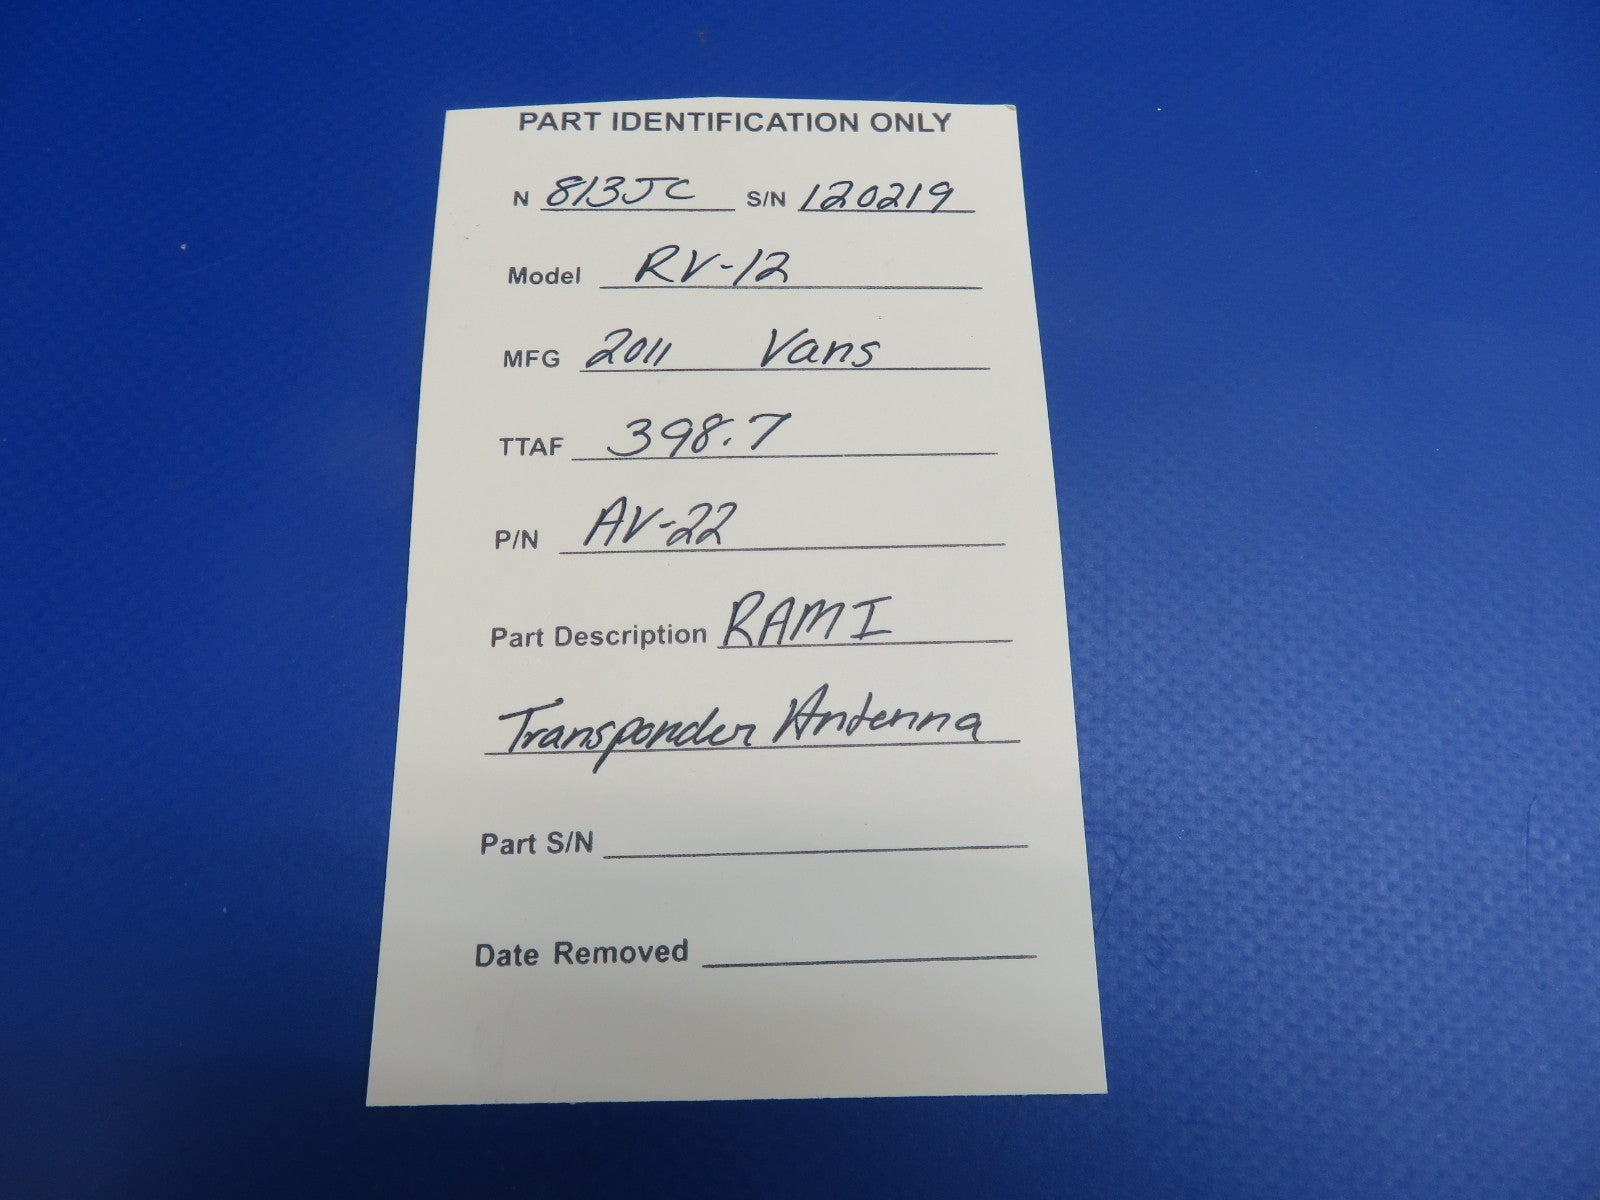 PART IDENTIFICATION ONLY
N 813JC S/N 120219
Model RV-12
MFG 2011 Vans
TTAF 398.7
P/N AV-22
Part Description RAMI
Transponder Antenna
Part S/N
Date Removed